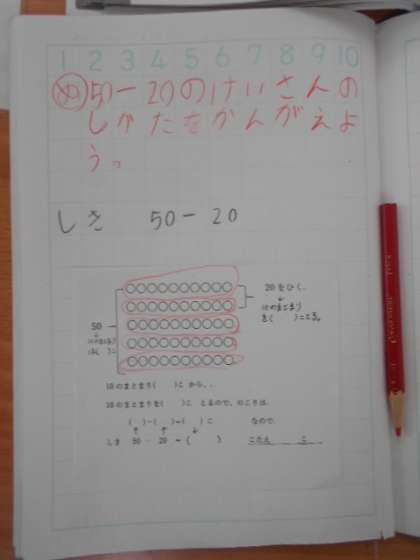 1 2 3 4 5 6 7 8 9 10
め 50-20のけいさんの
しかたをかんがえよ
う。
しき 50-20
20をひく。
↓
10のまとまり
を( )ことる。
50
↓
10のまとまり
が( )こ
10のまとまり( )こから、
10のまとまりを( )こ とるので、のこりは、
( )-( )=( )こ なので、
しき 50-20=( ) こたえ こ